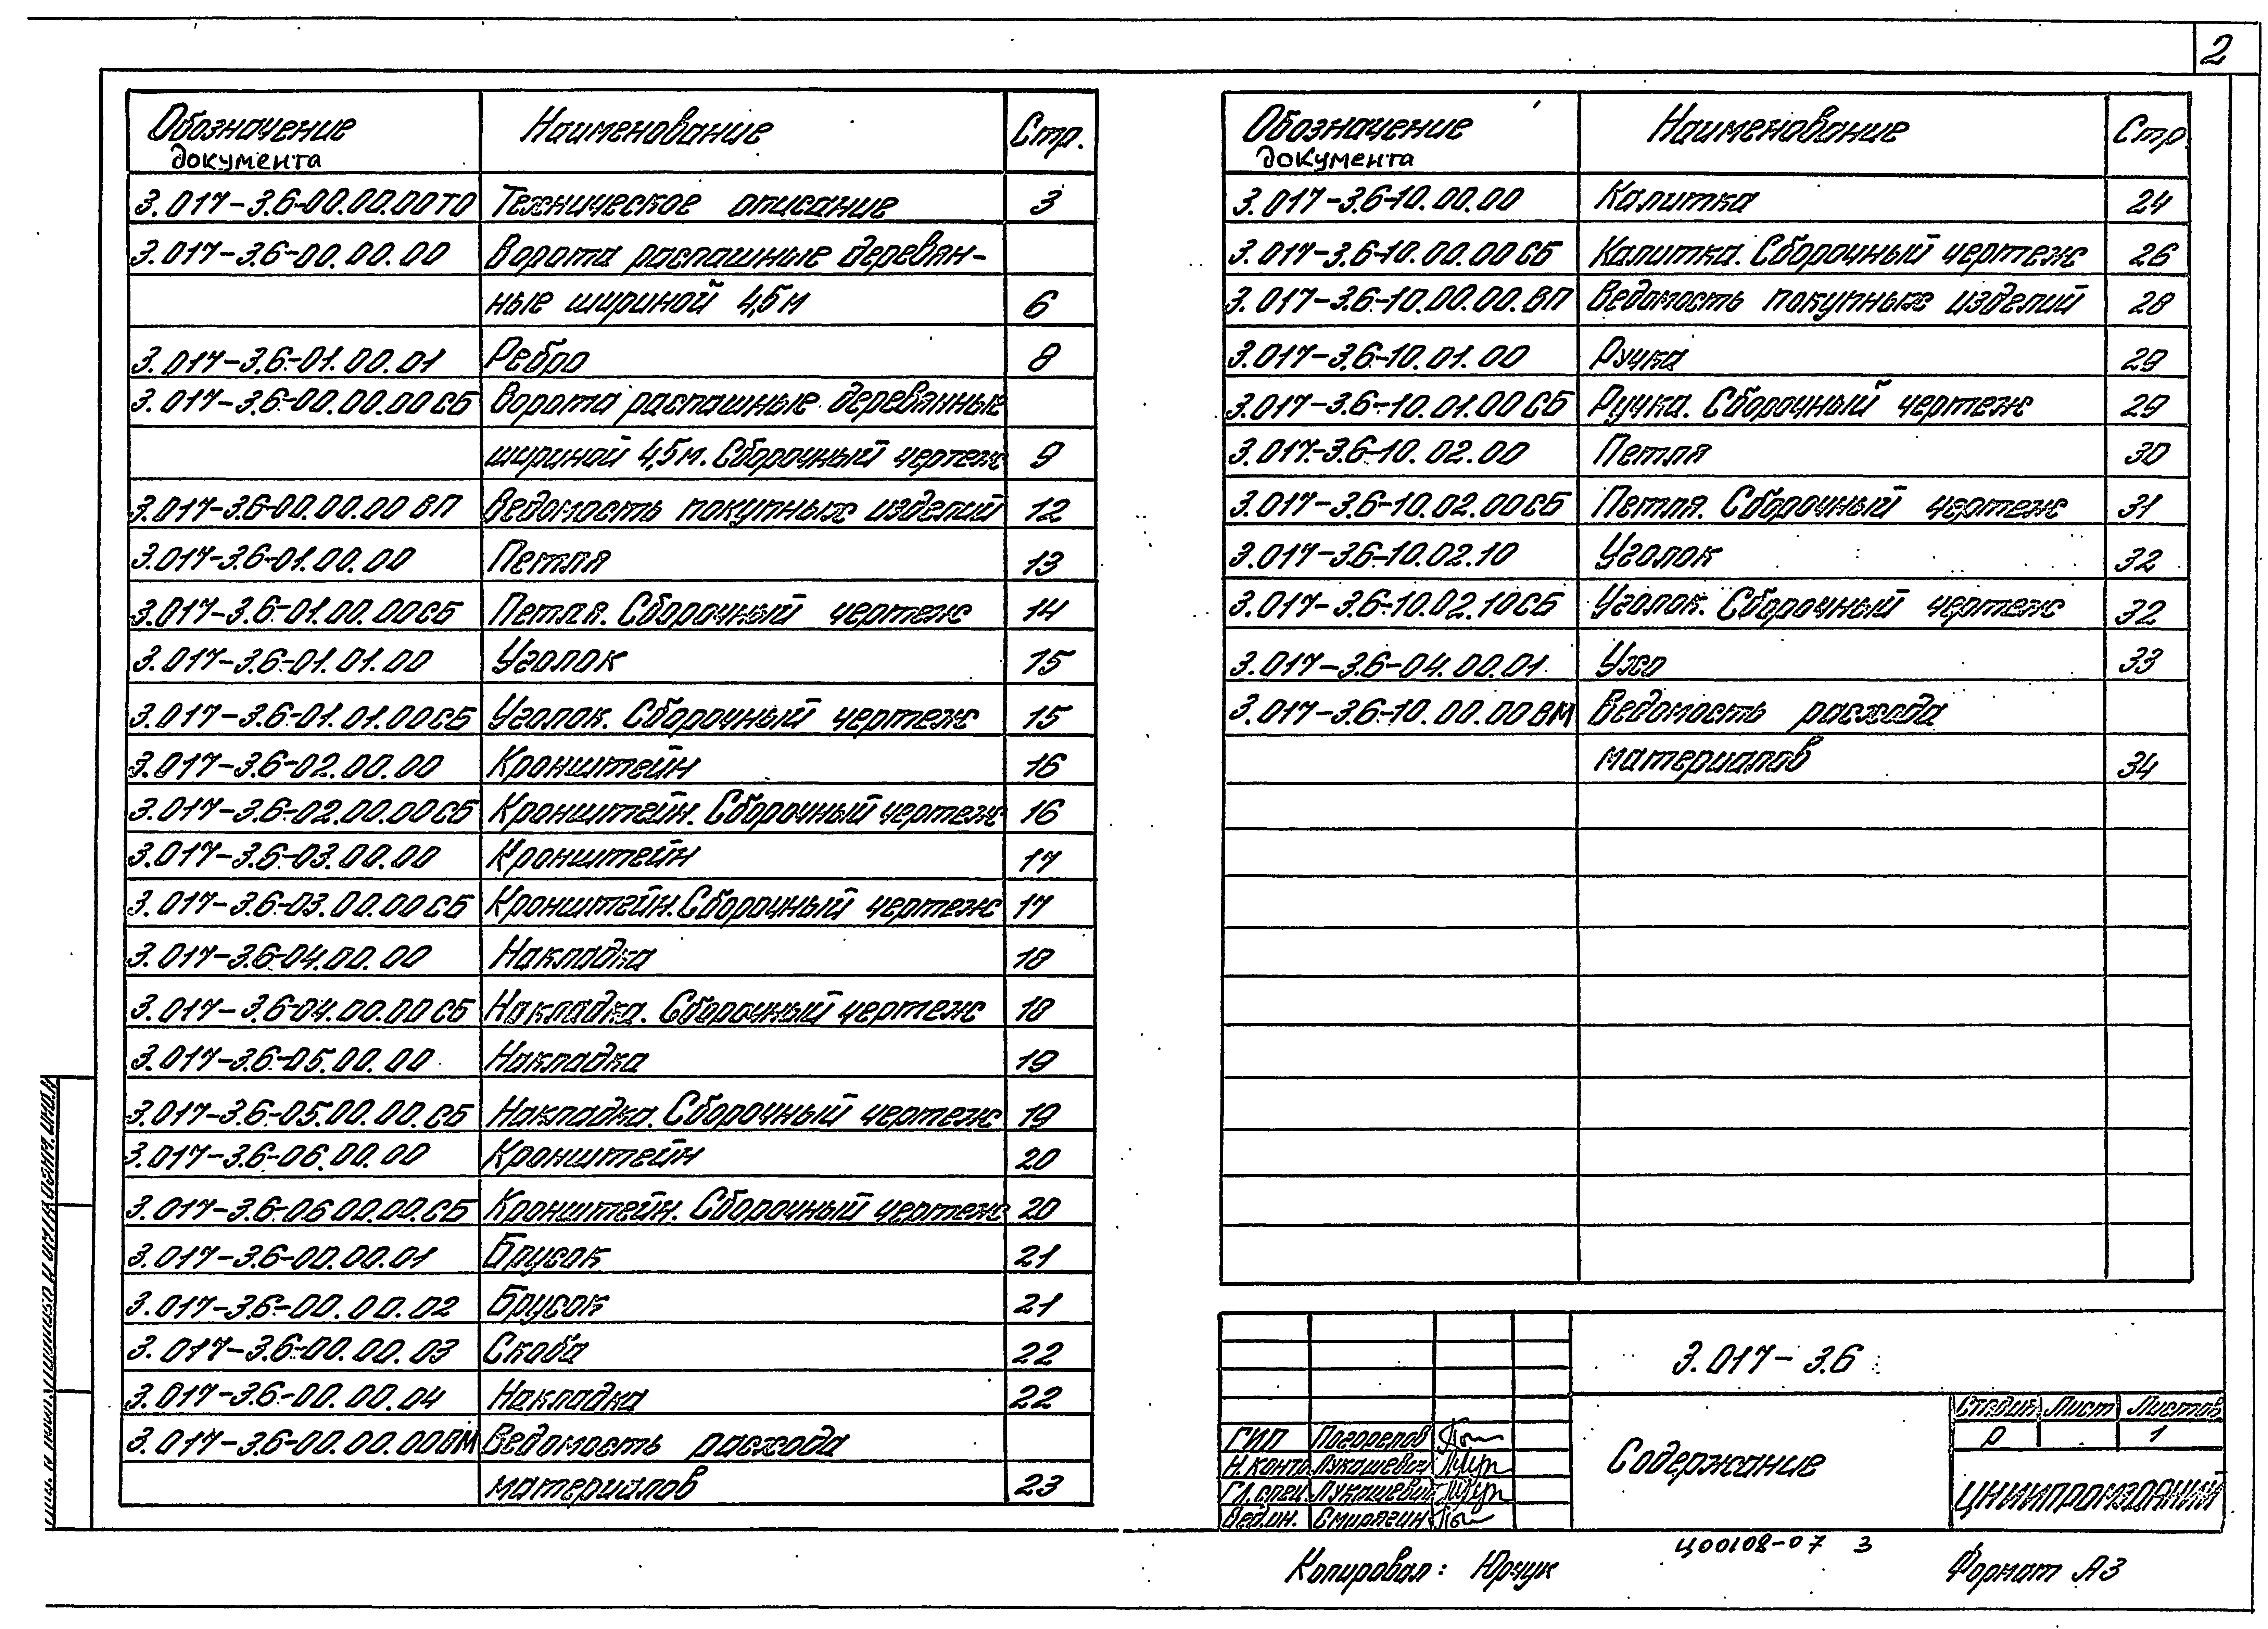 2
Обозначение документа Наименование Стр.
3.017-3.6-00.00.00ТО Техническое описание 3
3.017-3.6-00.00.00 Ворота распашные деревян-
ные шириной 4,5м 6
3.017-3.6-01.00.01 Ребро 8
3.017-3.6-00.00.00СБ Ворота распашные деревянные
шириной 4,5м. Сборочный чертеж 9
3.017-3.6-00.00.00 ВП Ведомость покупных изделий 12
3.017-3.6-01.00.00 Петля 13
3.017-3.6-01.00.00СБ Петля. Сборочный чертеж 14
3.017-3.6-01.01.00 Уголок 15
3.017-3.6-01.01.00СБ Уголок. Сборочный чертеж 15
3.017-3.6-02.00.00 Кронштейн 16
3.017-3.6-02.00.00СБ Кронштейн. Сборочный чертеж 16
3.017-3.6-03.00.00 Кронштейн 17
3.017-3.6-03.00.00СБ Кронштейн. Сборочный чертеж 17
3.017-3.6-04.00.00 Накладка 18
3.017-3.6-04.00.00СБ Накладка. Сборочный чертеж 18
3.017-3.6-05.00.00 Накладка 19
3.017-3.6-05.00.00.СБ Накладка. Сборочный чертеж 19
3.017-3.6-06.00.00 Кронштейн 20
3.017-3.6-06.00.00.СБ Кронштейн. Сборочный чертеж 20
3.017-3.6-00.00.01 Брусок 21
3.017-3.6-00.00.02 Брусок 21
3.017-3.6-00.00.03 Скоба 22
3.017-3.6-00.00.04 Накладка 22
3.017-3.6-00.00.00ВМ Ведомость расхода
материалов 23
Обозначение документа Наименование Стр.
3.017-3.6-10.00.00 Калитка 24
3.017-3.6-10.00.00СБ Калитка. Сборочный чертеж 26
3.017-3.6-10.00.00.ВП Ведомость покупных изделий 28
3.017-3.6-10.01.00 Ручка 29
3.017-3.6-10.01.00СБ Ручка. Сборочный чертеж 29
3.017-3.6-10.02.00 Петля 30
3.017-3.6-10.02.00СБ Петля. Сборочный чертеж 31
3.017-3.6-10.02.10 Уголок 32
3.017-3.6-10.02.10СБ Уголок. Сборочный чертеж 32
3.017-3.6-04.00.01 Ухо 33
3.017-3.6-10.00.00ВМ Ведомость расхода
материалов 34
3.017-3.6
Содержание
Стадия Лист Листов
Р 1
ЦНИИПРОМЗДАНИЙ
ГИП Погорелов
Н.контр. Лукашевич
Гл.спец. Лукашевич
Вед.ин. Смирягин
Ц00108-07 3
Копировал: Юрчук Формат А3